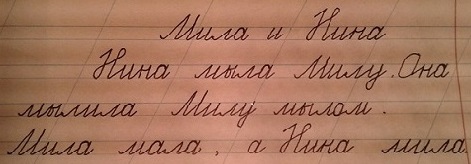 Мила и Нина
Нина мыла Милу. Она
мылила Милу мылом.
Мила мала, а Нина мила